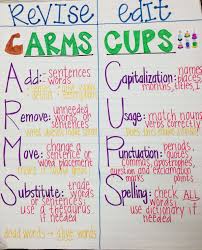 Revise edit
ARMS CUPS
Add: sentences
words
Remove: unneeded
words or
sentences
Move: change a
sentence or
word placement
Substitute: trade
words
or sentences,
use a thesaurus if
needed
dead words →
Capitalization: names,
places
months, titles, I
Usage: match nouns
verbs correctly
Punctuation: periods,
quotes,
commas, apostrophes,
question and exclamation
marks
Spelling: check ALL
words,
use dictionary if
needed